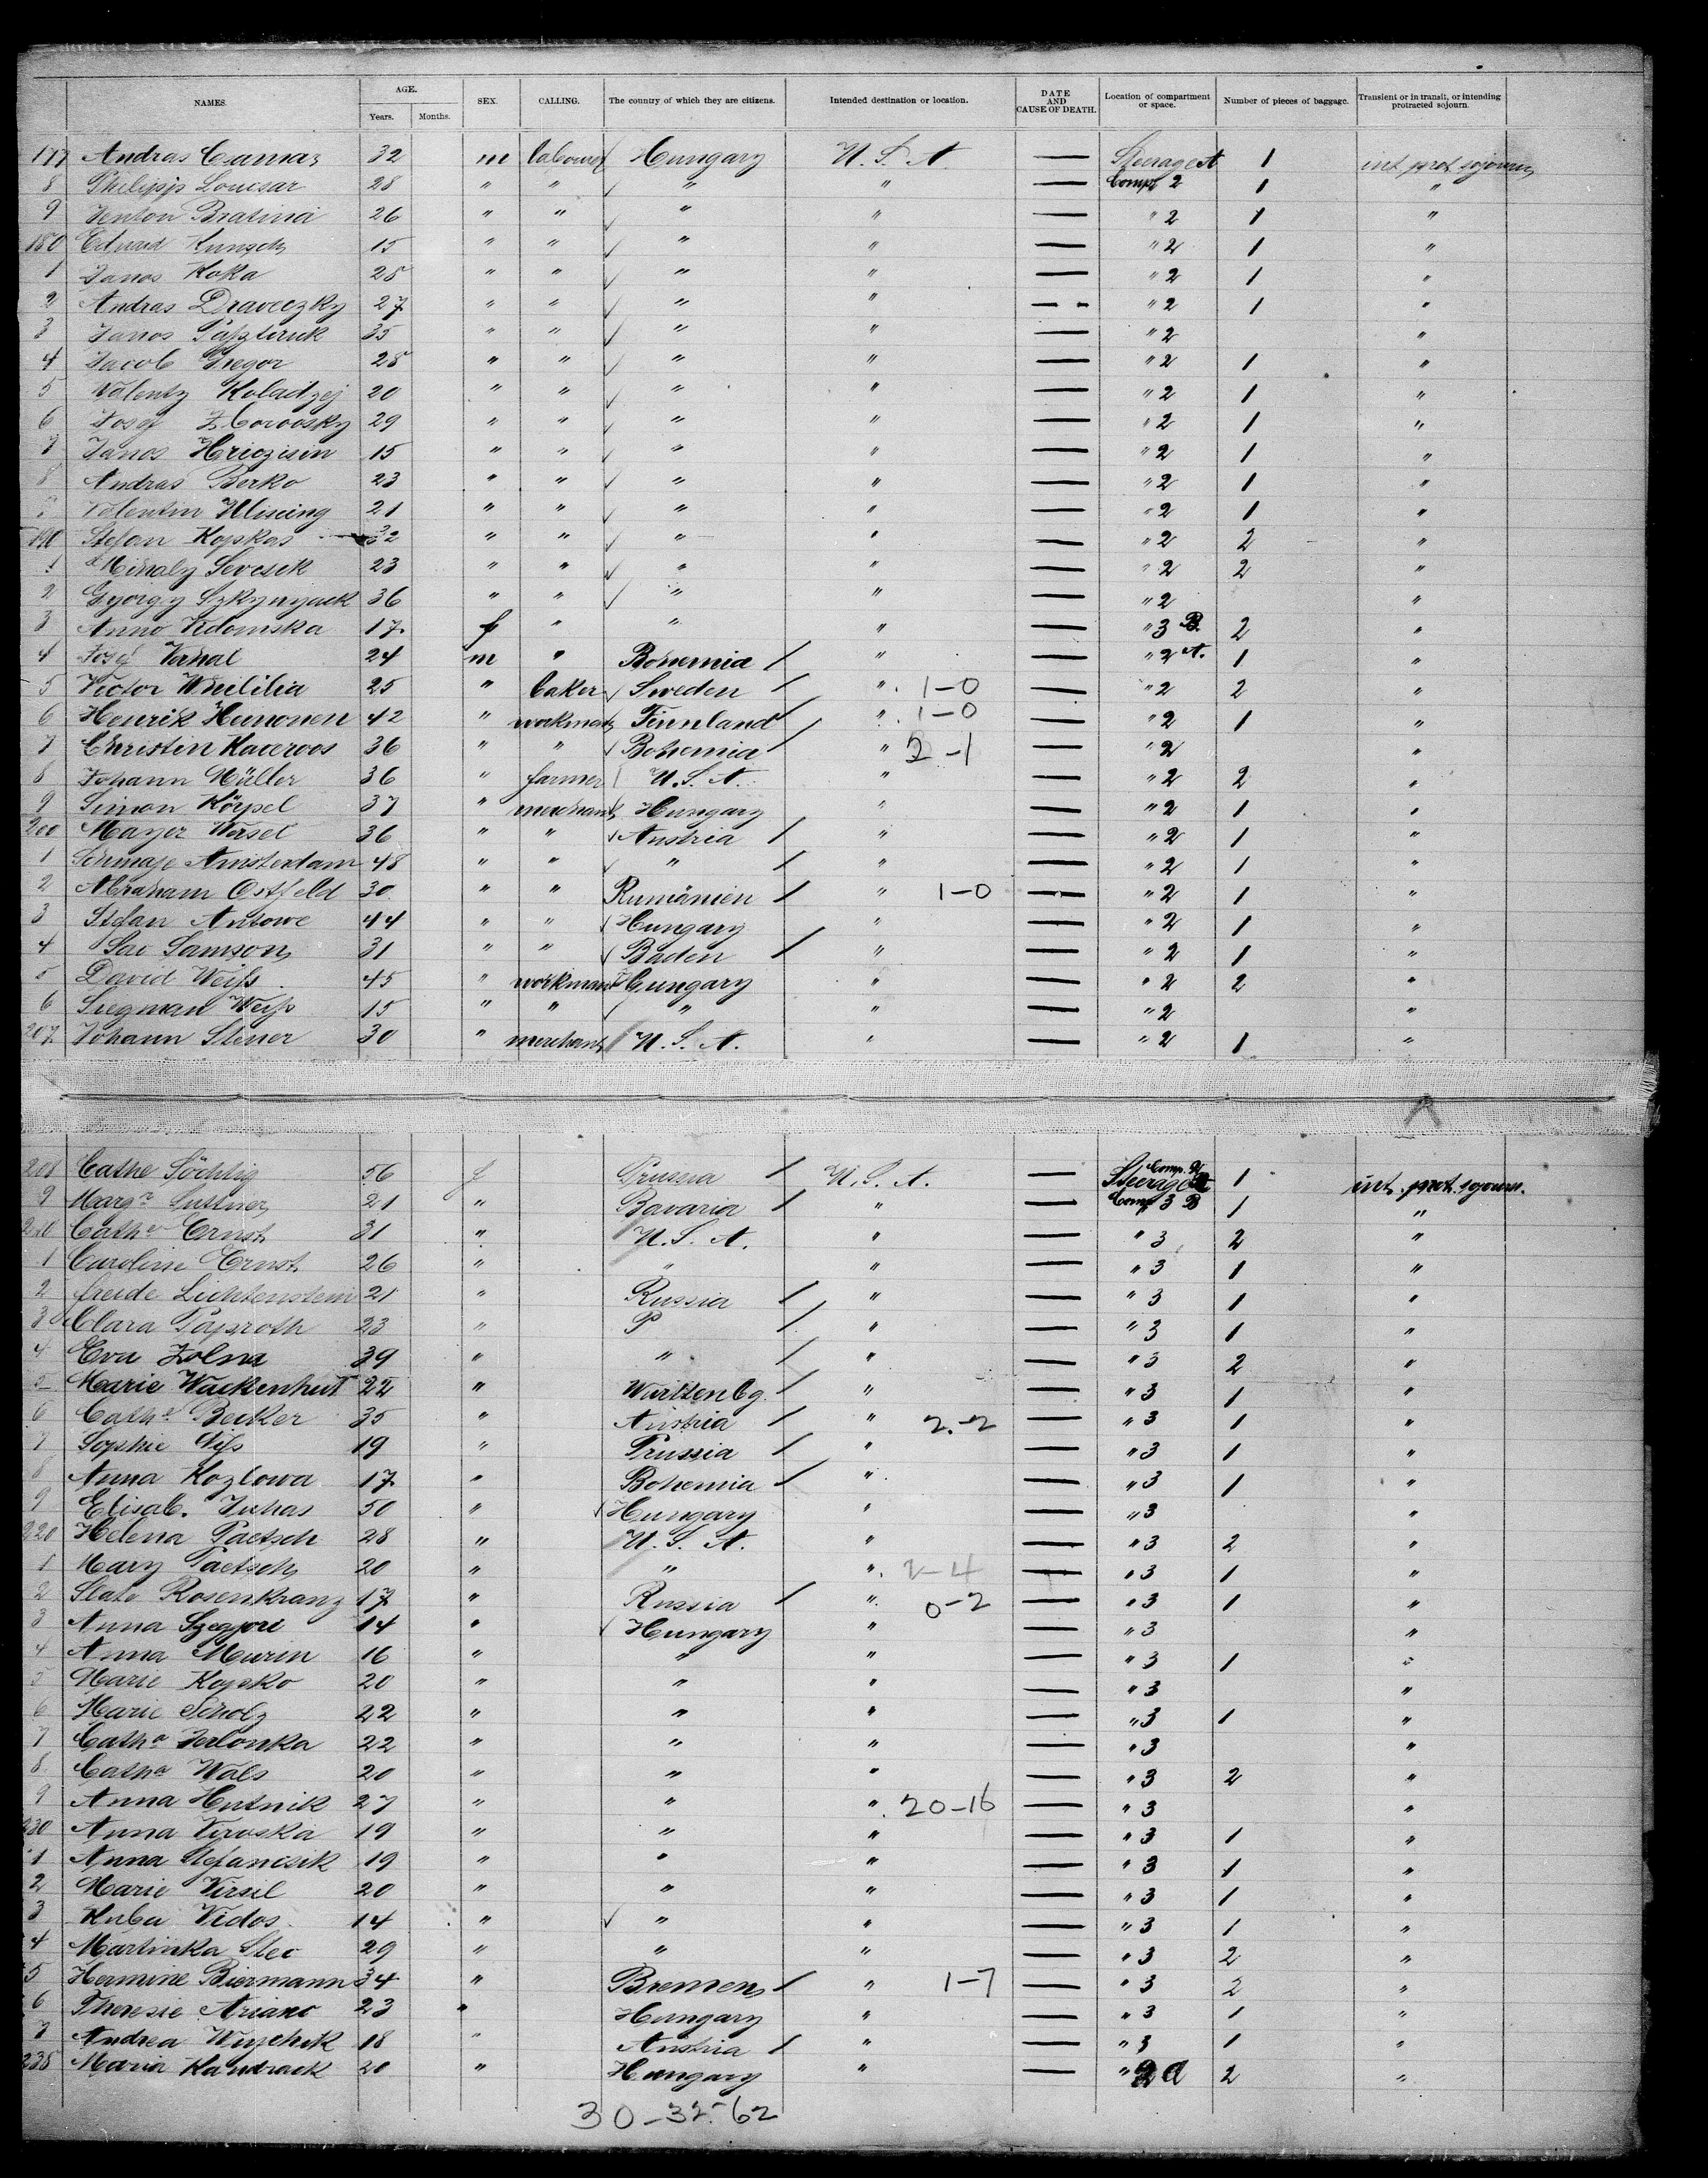 NAMES. AGE. Years. Months. SEX. CALLING. The country of which they are citizens. Intended destination or location. DATE AND CAUSE OF DEATH. Location of compartment or space. Number of pieces of baggage. Transient or in transit, or intending protracted sojourn.
177 Andras 32 m labourer Hungary U. S. A. — Steerage A 1 int. prot. sojourn
8 Philipp Loucsar 28 " " " " — Comp 2 1 "
9 Bratina 26 " " " " — " 2 1 "
180 Eduard Kunsch 15 " " " " — " 2 1 "
1 Janos Koka 28 " " " " — " 2 1 "
2 Andras Draveczky 27 " " " " — " 2 1 "
3 Janos 35 " " " " — " 2 "
4 Jacob Gregor 28 " " " " — " 2 1 "
5 Valenty Koladzej 20 " " " " — " 2 1 "
6 Josef Zborovsky 29 " " " " — " 2 1 "
7 Janos Hriczisin 15 " " " " — " 2 1 "
8 Andras Berko 23 " " " " — " 2 1 "
Valentin 21 " " " " — " 2 1 "
190 Stefan Kopkas 32 " " " " — " 2 2 "
1 Mihaly Sevcsek 23 " " " " — " 2 2 "
2 György 36 " " " " — " 2 "
3 Anno Vidomska 17 f " " " — " 3 B. 2 "
4 Josef 24 m " Bohemia " — " 2 A. 1 "
5 Victor 25 " baker Sweden " 1-0 — " 2 2 "
6 Henrik Hunonen 42 " workman Finnland " 1-0 — " 2 1 "
7 Christin Kaceroos 36 " " Bohemia " 2-1 — " 2 "
8 Johann Müller 36 " farmer U. S. A. " — " 2 2 "
9 Simon Körpel 37 " merchant Hungary " — " 2 1 "
200 Mayer Wersel 36 " " Austria " — " 2 1 "
1 Amsterdam 48 " " " " — " 2 1 "
2 Abraham Ostfeld 30 " " Rumänien " 1-0 — " 2 1 "
3 Stefan Antowe 44 " " Hungary " — " 2 1 "
4 Samson 31 " " Baden " — " 2 1 "
5 David Weiss 45 " workman Hungary " — " 2 2 "
6 Siegman Weiss 15 " " " " — " 2 "
207 Johann Steuer 30 " merchant U. S. A. " — " 2 1 "
208 Cathe Söchtig 56 f Prussia U. S. A. — Steerage Comp. 1 int. prot. sojourn.
9 Marga Suttner 21 " Bavaria " — Comp 3 B 1 "
210 Catha Ernst 31 " U. S. A. " — " 3 2 "
1 Caroline Ernst 26 " " " — " 3 1 "
2 Freide Lichtenstein 21 " Russia " — " 3 1 "
3 Clara Paproth 23 " P " — " 3 1 "
4 Eva Zolna 39 " " " — " 3 2 "
5 Marie Wackenhut 22 " Württenbg. " — " 3 1 "
6 Catha Becker 35 " Austria " 2-2 — " 3 1 "
7 Sophie 19 " Prussia " — " 3 1 "
8 Anna Kozlowa 17 " Bohemia " — " 3 1 "
9 Elisab. Juhas 50 " Hungary " — " 3 "
220 Helena Paetsch 28 " U. S. A. " — " 3 2 "
1 Mary Paetsch 20 " " " 2-4 — " 3 1 "
2 Slate Rosenkranz 17 " Russia " 0-2 — " 3 1 "
3 Anna Szegjori 14 " Hungary " — " 3 "
4 Anna Murin 16 " " " — " 3 1 "
5 Marie Kopko 20 " " " — " 3 "
6 Marie Scholz 22 " " " — " 3 1 "
7 Catha Jerlonka 22 " " " — " 3 "
8 Catha Wals 20 " " " — " 3 2 "
9 Anna Hutnik 27 " " " 20-16 — " 3 "
230 Anna Viroska 19 " " " — " 3 1 "
1 Anna Stefancsik 19 " " " — " 3 1 "
2 Marie Virsil 20 " " " — " 3 1 "
3 Kuba Vidos 14 " " " — " 3 1 "
4 Martinka Stec 29 " " " — " 3 2 "
5 Hermine Biermann 34 " Bremen " 1-7 — " 3 2 "
6 Theresie Ariano 23 " Hungary " — " 3 1 "
7 Andrea 18 " Austria " — " 3 1 "
238 Maria Kandrack 20 " Hungary " — " 2 a 2 "
30-32-62